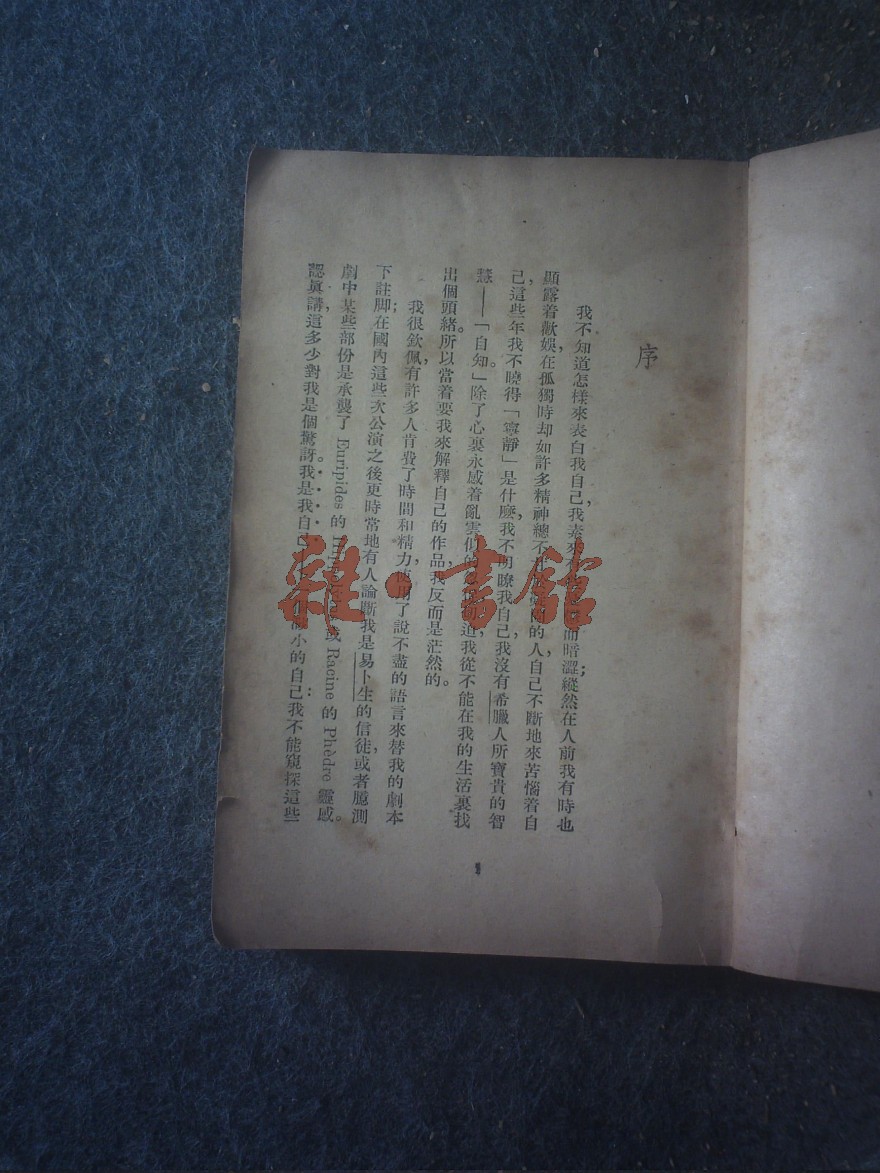 序
我不知道怎樣來表白我自己，我素來有 而暗澀；縱然在人前我有時也
顯露着歡娛，在孤獨時却如許多精神總不 的人，自己不斷地來苦惱着自
己，這些年我不曉得「寧靜」是什麼，我不明瞭我自己，我沒有希臘人所寶貴的智
慧——「自知」。除了心裏永感着亂雲似的 迫，我從不能在我的生活裏找
出個頭緒。所以當着要我來解釋自己的作品，我反而是茫然的。
我很欽佩，有許多人肯費了時間和精力，使用了說不盡的語言來替我的劇本
下註脚；在國內這些次公演之後更時常地有人論斷我是易卜生的信徒，或者臆測
劇中某些部份是承襲了 Euripides 的 或 Racine 的 Phèdre 靈感。
認眞講，這多少對我是個驚訝。我是我自己—— 小的自己：我不能窺探這些
1
雜·書館